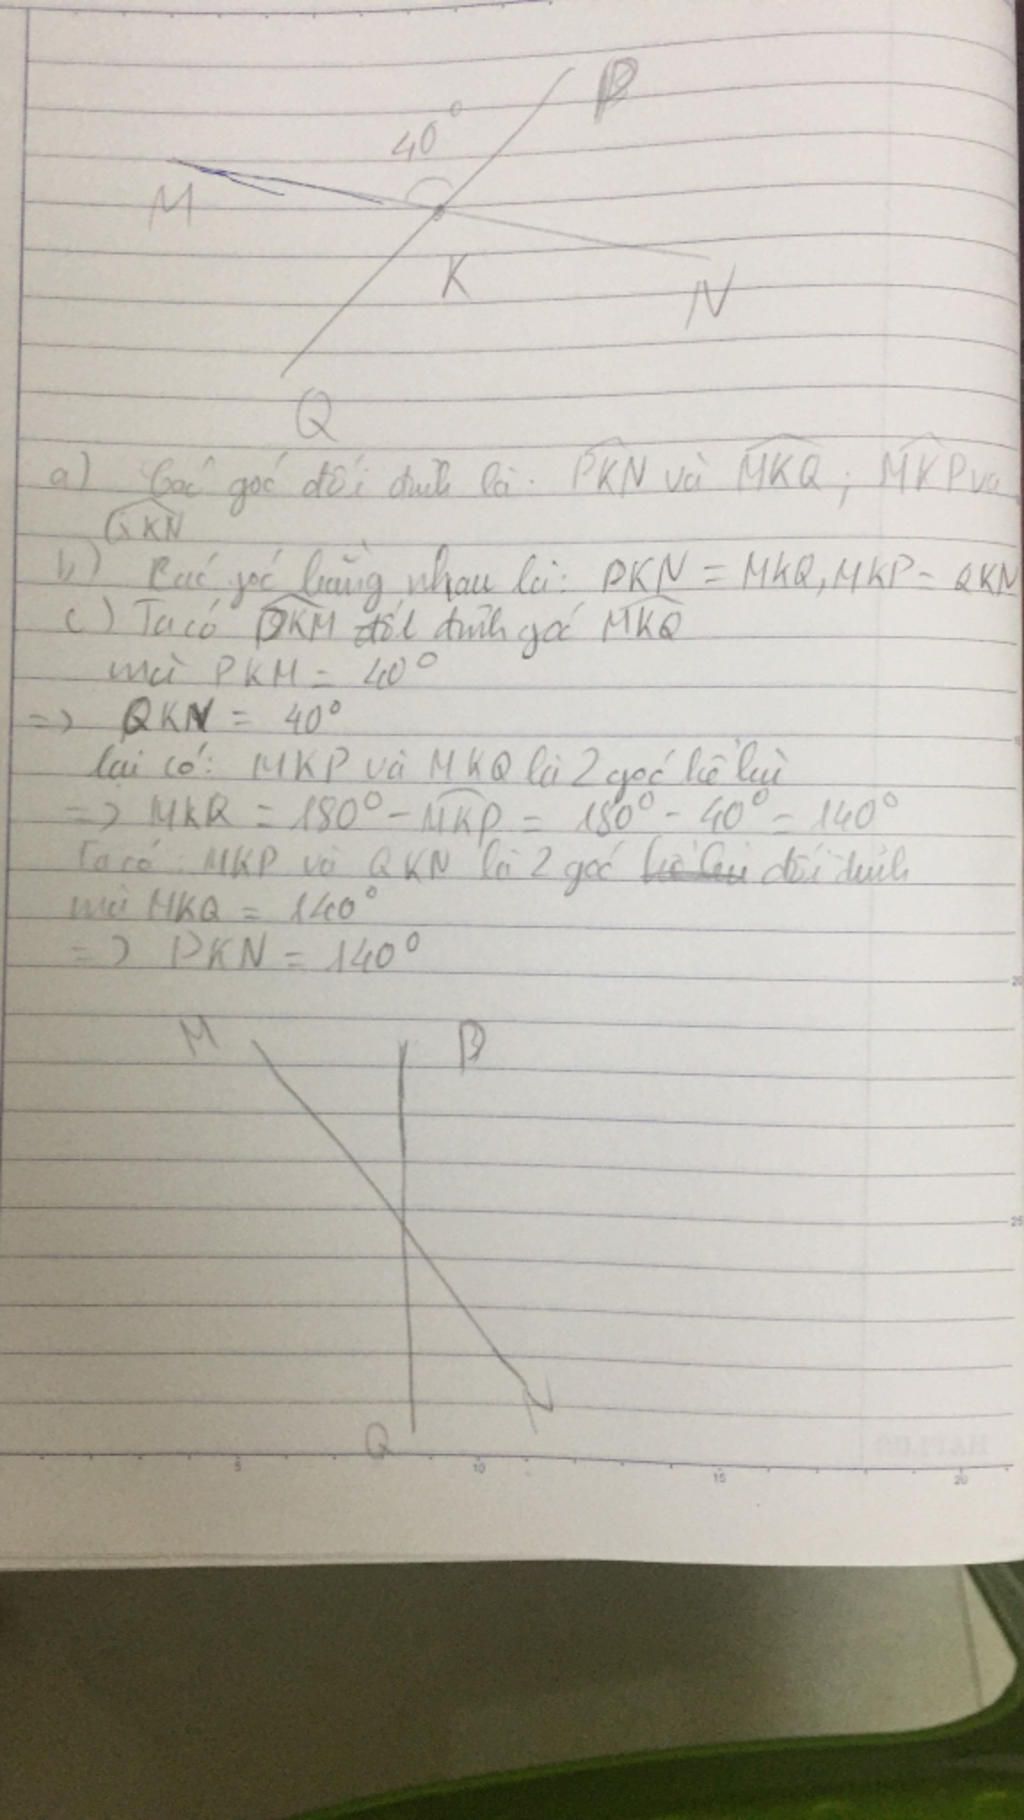 P
40°
M
K
N
Q
a) Các góc đối đỉnh là: PKN và MKQ; MKP và
QKN
b) Các góc bằng nhau là: PKN = MKQ, MKP = QKN
c) Ta có PKM đối đỉnh góc MKQ
mà PKM = 40°
=> QKN = 40°
lại có: MKP và MKQ là 2 góc kề bù
=> MKQ = 180° - MKP = 180° - 40° = 140°
Ta có: MKP và QKN là 2 góc kề bù đối đỉnh
mà MKQ = 140°
=> PKN = 140°
M P
N
Q
5 10 15 20
20
25